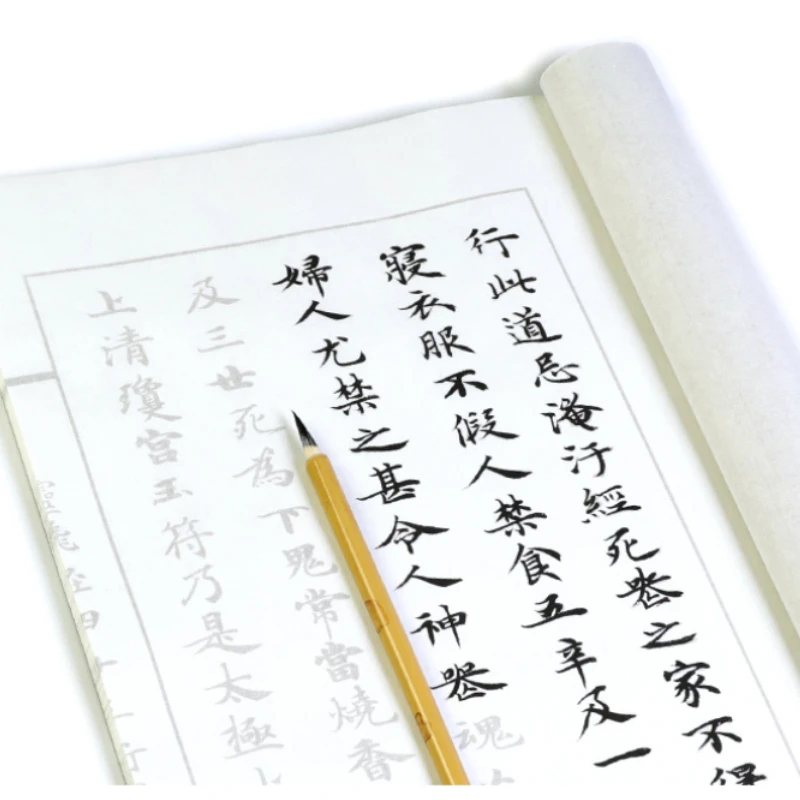 行此道忌淹汙經死喪之家不得
寢衣服不假人禁食五辛及一
婦人尤禁之甚令人神喪魂
及三世死為下鬼常當燒香
上清瓊宮玉符乃是太極上
靈飛經